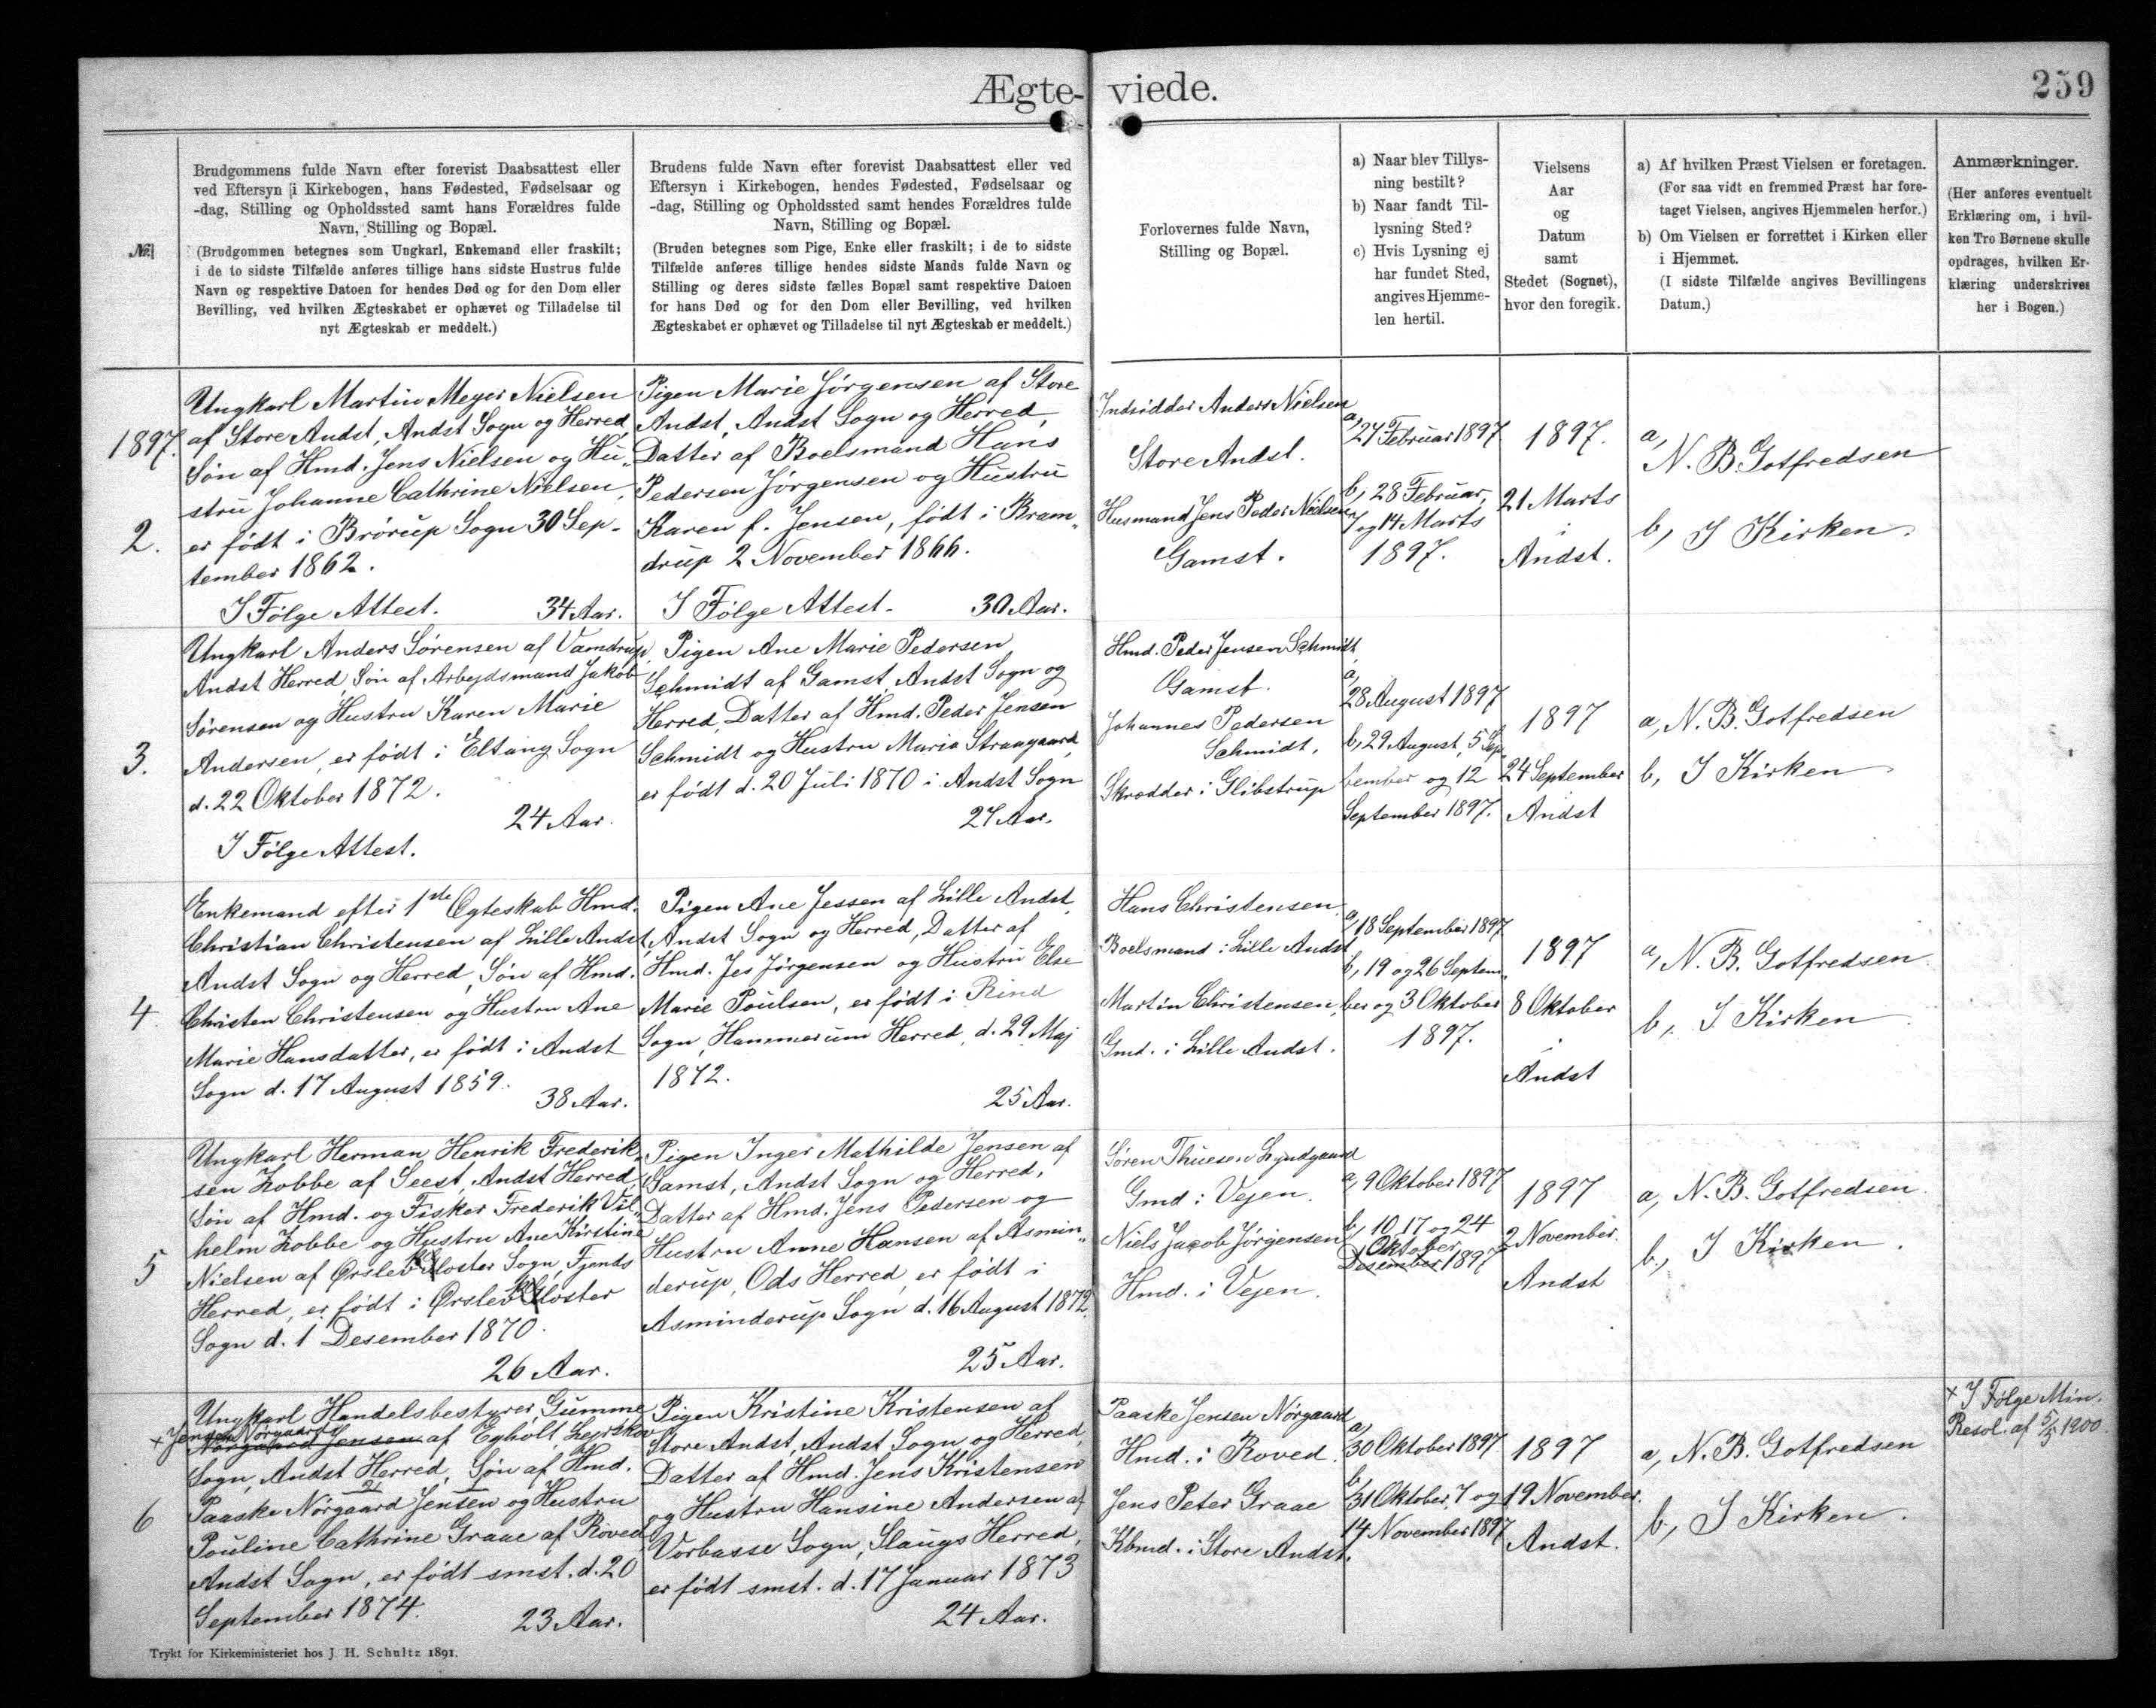 Ægte-viede.
259
№
Brudgommens fulde Navn efter forevist Daabsattest eller
ved Eftersyn i Kirkebogen, hans Fødested, Fødselsaar og
-dag, Stilling og Opholdssted samt hans Forældres fulde
Navn, Stilling og Bopæl.
(Brudgommen betegnes som Ungkarl, Enkemand eller fraskilt;
i de to sidste Tilfælde anføres tillige hans sidste Hustrus fulde
Navn og respektive Datoen for hendes Død og for den Dom eller
Bevilling, ved hvilken Ægteskabet er ophævet og Tilladelse til
nyt Ægteskab er meddelt.)
Brudens fulde Navn efter forevist Daabsattest eller ved
Eftersyn i Kirkebogen, hendes Fødested, Fødselsaar og
-dag, Stilling og Opholdssted samt hendes Forældres fulde
Navn, Stilling og Bopæl.
(Bruden betegnes som Pige, Enke eller fraskilt; i de to sidste
Tilfælde anføres tillige hendes sidste Mands fulde Navn og
Stilling og deres sidste fælles Bopæl samt respektive Datoen
for hans Død og for den Dom eller Bevilling, ved hvilken
Ægteskabet er ophævet og Tilladelse til nyt Ægteskab er meddelt.)
Forlovernes fulde Navn,
Stilling og Bopæl.
a) Naar blev Tillys-
ning bestilt?
b) Naar fandt Til-
lysning Sted?
c) Hvis Lysning ej
har fundet Sted,
angives Hjemme-
len hertil.
Vielsens
Aar
og
Datum
samt
Stedet (Sognet),
hvor den foregik.
a) Af hvilken Præst Vielsen er foretagen.
(For saa vidt en fremmed Præst har fore-
taget Vielsen, angives Hjemmelen herfor.)
b) Om Vielsen er forrettet i Kirken eller
i Hjemmet.
(I sidste Tilfælde angives Bevillingens
Datum.)
Anmærkninger.
(Her anføres eventuelt
Erklæring om, i hvil-
ken Tro Børnene skulle
opdrages, hvilken Er-
klæring underskrives
her i Bogen.)
1897.
2.
Ungkarl Martin Meyer Nielsen
af Store Andst, Andst Sogn og Herred,
Søn af Hmd. Jens Nielsen og Hu-
stru Johanne Cathrine Nielsen,
er født i Brørup Sogn 30 Sep-
tember 1862.
I Følge Attest. 34 Aar.
Pigen Marie Jørgensen af Store
Andst, Andst Sogn og Herred,
Datter af Boelsmand Hans
Pedersen Jørgensen og Hustru
Karen f. Jensen, født i Bram-
drup 2 November 1866.
I Følge Attest. 30 Aar.
Indsidder Anders Nielsen
Store Andst.
Husmand Jens Peder Nielsen
Gamst.
a, 27 Februar 1897
b, 28 Februar,
7 og 14 Marts
1897.
1897.
21 Marts
i
Andst.
a,
N. B. Gotfredsen
b, I Kirken.
3.
Ungkarl Anders Sørensen af Vamdrup,
Andst Herred, Søn af Arbejdsmand Jakob
Sørensen og Hustru Karen Marie
Andersen, er født i Eltang Sogn
d. 22 Oktober 1872.
24 Aar.
I Følge Attest.
Pigen Ane Marie Pedersen
Schmidt af Gamst, Andst Sogn og
Herred, Datter af Hmd. Peder Jensen
Schmidt og Hustru Maria Straugaard,
er født d. 20 Juli 1870 i Andst Sogn
27 Aar.
Hmd. Peder Jensen Schmidt,
Gamst.
Johannes Pedersen
Schmidt,
Skrædder i Glibstrup
a,
28 August 1897
b, 29 August, 5 Sep-
tember og 12
September 1897.
1897
24 September
Andst
a, N. B. Gotfredsen
b, I Kirken
4
Enkemand efter 1ste Ægteskab Hmd.
Christian Christensen af Lille Andst,
Andst Sogn og Herred, Søn af Hmd.
Christen Christensen og Hustru Ane
Marie Hansdatter, er født i Andst
Sogn d. 17 August 1859.
38 Aar.
Pigen Ane Jessen af Lille Andst,
Andst Sogn og Herred, Datter af
Hmd. Jes Jørgensen og Hustru Else
Marie Poulsen, er født i Rind
Sogn, Hammerum Herred, d. 29 Maj
1872.
25 Aar.
Hans Christensen,
Boelsmand i Lille Andst
Martin Christensen,
Gmd. i Lille Andst.
a, 18 September 1897
b, 19 og 26 Septem-
ber og 3 Oktober
1897.
1897
8 Oktober
i
Andst
a, N. B. Gotfredsen
b, I Kirken
5
Ungkarl Herman Henrik Frederik-
sen Lobbe af Seest, Andst Herred,
Søn af Hmd. og Fisker Frederik Vil-
helm Lobbe og Hustru Ane Kirstine
Nielsen af Ørslevkloster Sogn, Fjends
Herred, er født i Ørslevkloster
Sogn d. 1 Desember 1870.
26 Aar.
Pigen Inger Mathilde Jensen af
Gamst, Andst Sogn og Herred,
Datter af Hmd. Jens Pedersen og
Hustru Anne Hansen af Asmin-
derup, Ods Herred, er født i
Asminderup Sogn d. 16 August 1872.
25 Aar.
Søren Thuesen Lyndgaard
Gmd i Vejen.
Niels Jacob Jørgensen
Hmd. i Vejen.
a, 9 Oktober 1897
b, 10, 17 og 24
Oktober
Desember 1897
1897
2 November.
Andst
a, N. B. Gotfredsen
b, I Kirken.
6
Ungkarl Handelsbestyrer Gumme
× Jensen Nørgaard
Nørgaard Jensen af Egholt, Lejrskov
Sogn, Andst Herred, Søn af Hmd.
Paaske Nørgaard Jensen og Hustru
Pouline Cathrine Graae af Roved
Andst Sogn, er født smst. d. 20
September 1874. 23 Aar.
Pigen Kristine Kristensen af
Store Andst, Andst Sogn og Herred,
Datter af Hmd. Jens Kristensen
og Hustru Hansine Andersen af
Vorbasse Sogn, Slaugs Herred,
er født smst. d. 17 Januar 1873
24 Aar.
Paaske Jensen Nørgaard
Hmd. i Roved.
Jens Peter Graae
Kbmd. i Store Andst.
a,
30 Oktober 1897
b,
31 Oktober, 7 og
14 November 1897
1897
19 November.
Andst.
a, N. B. Gotfredsen
b, I Kirken.
× I Følge Min.
Resol. af 5/5 1900.
Trykt for Kirkeministeriet hos J. H. Schultz 1891.